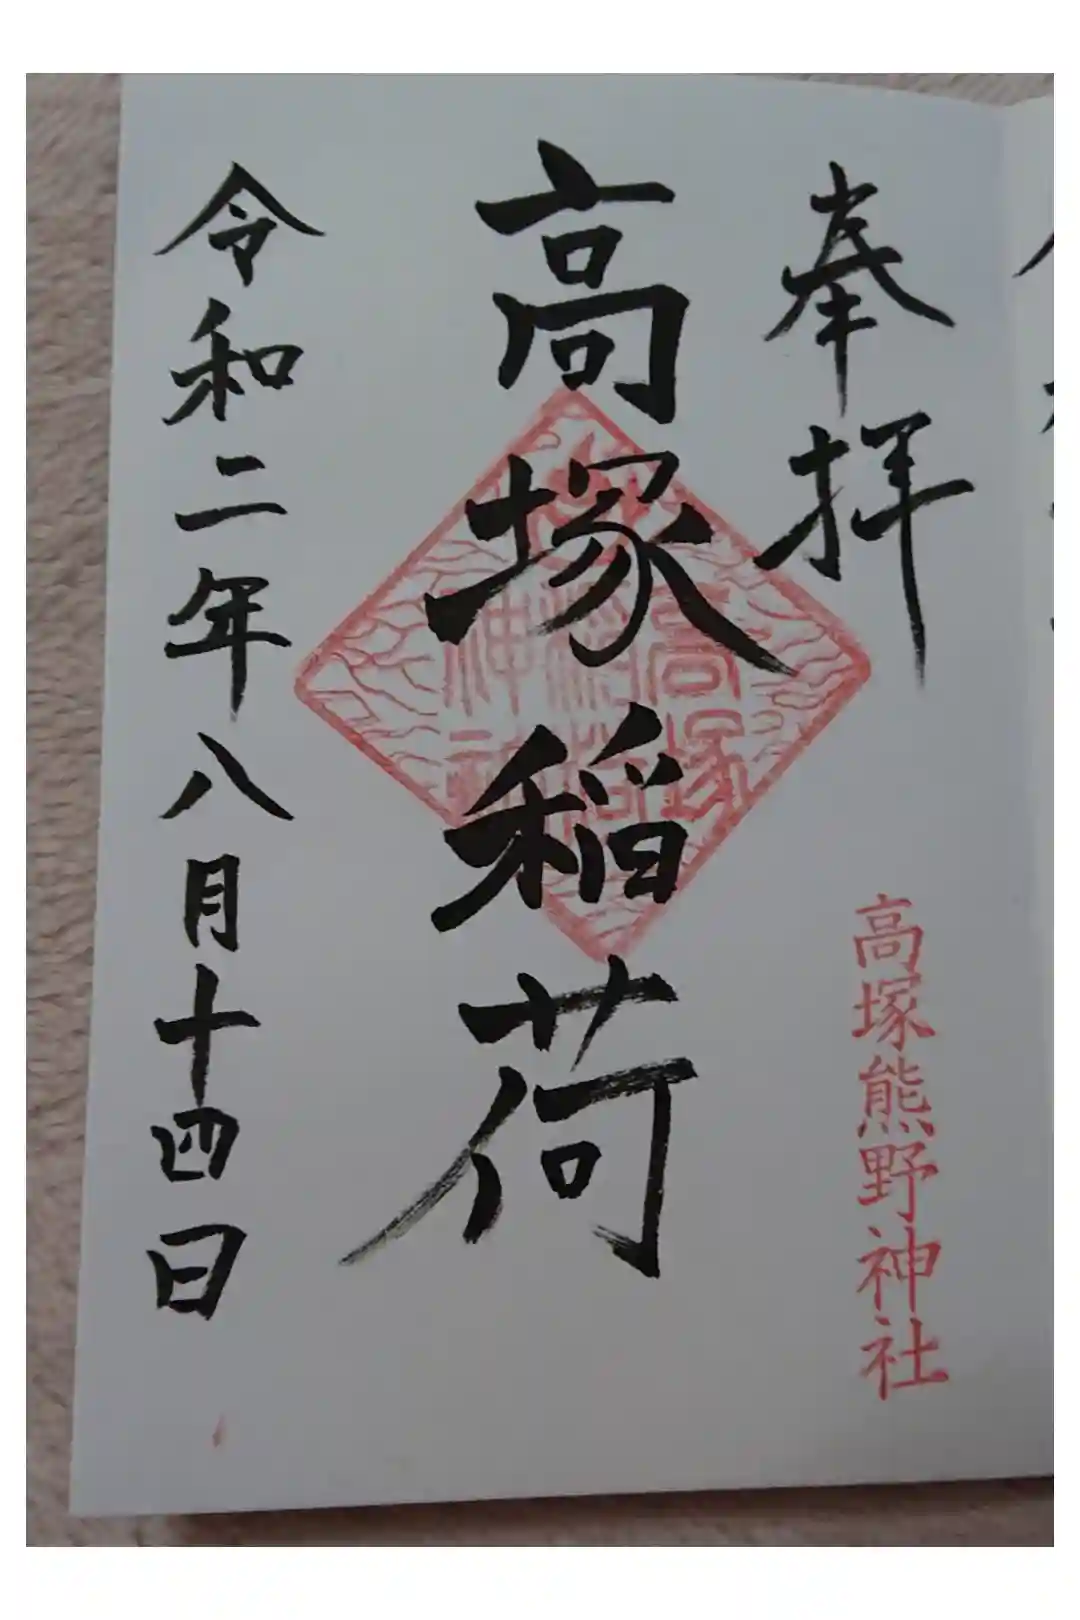 奉拝
高塚熊野神社
高塚稲荷
高塚
神社
令和二年八月十四日